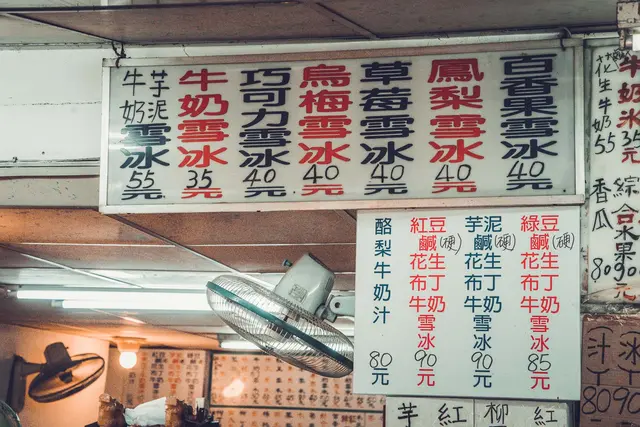 芋泥牛奶雪冰55元
牛奶雪冰35元
巧可力雪冰40元
烏梅雪冰40元
草莓雪冰40元
鳳梨雪冰40元
百香果雪冰40元
花生牛奶55
牛奶冰35元
香瓜80
綜合水果90元
酪梨牛奶汁80元
紅豆鹹(硬)花生布丁牛奶雪冰90元
芋泥鹹(硬)花生布丁牛奶雪冰90元
綠豆鹹(硬)花生布丁牛奶雪冰85元
芋
紅
柳
紅
汁
80
冰
90